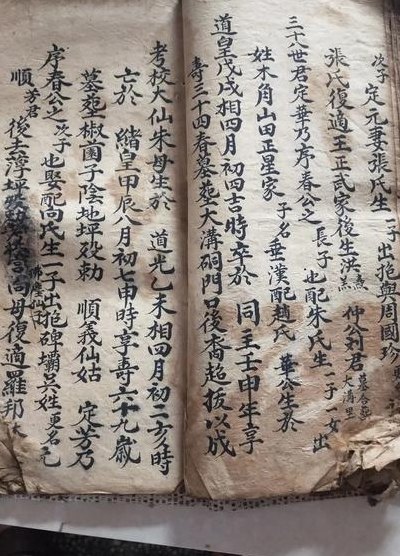 次子定元妻張氏生一子出抱與周國珍
張氏復適王正武家後生洪 仲公列君
三十八世君定華乃序春公之長子也配朱氏生一子一女出
姓木角山田正星家子名垂漢配趙氏 華公生於
道皇戊戌相四月初四吉時卒於 同王壬申年享
壽三十四春墓塟大溝硐門口後喬超拔以成
考校大仙朱母生於 道光乙未相四月初二亥時
亡於 緒皇甲辰八月初七申時享壽六十九歲
墓塟椒園子陰地坪 勅 順義仙姑 定芳乃
序春公之次子也娶配尚氏生一子出抱硨壩吳姓更名
順芳君後去淳坪 尚母復適羅邦